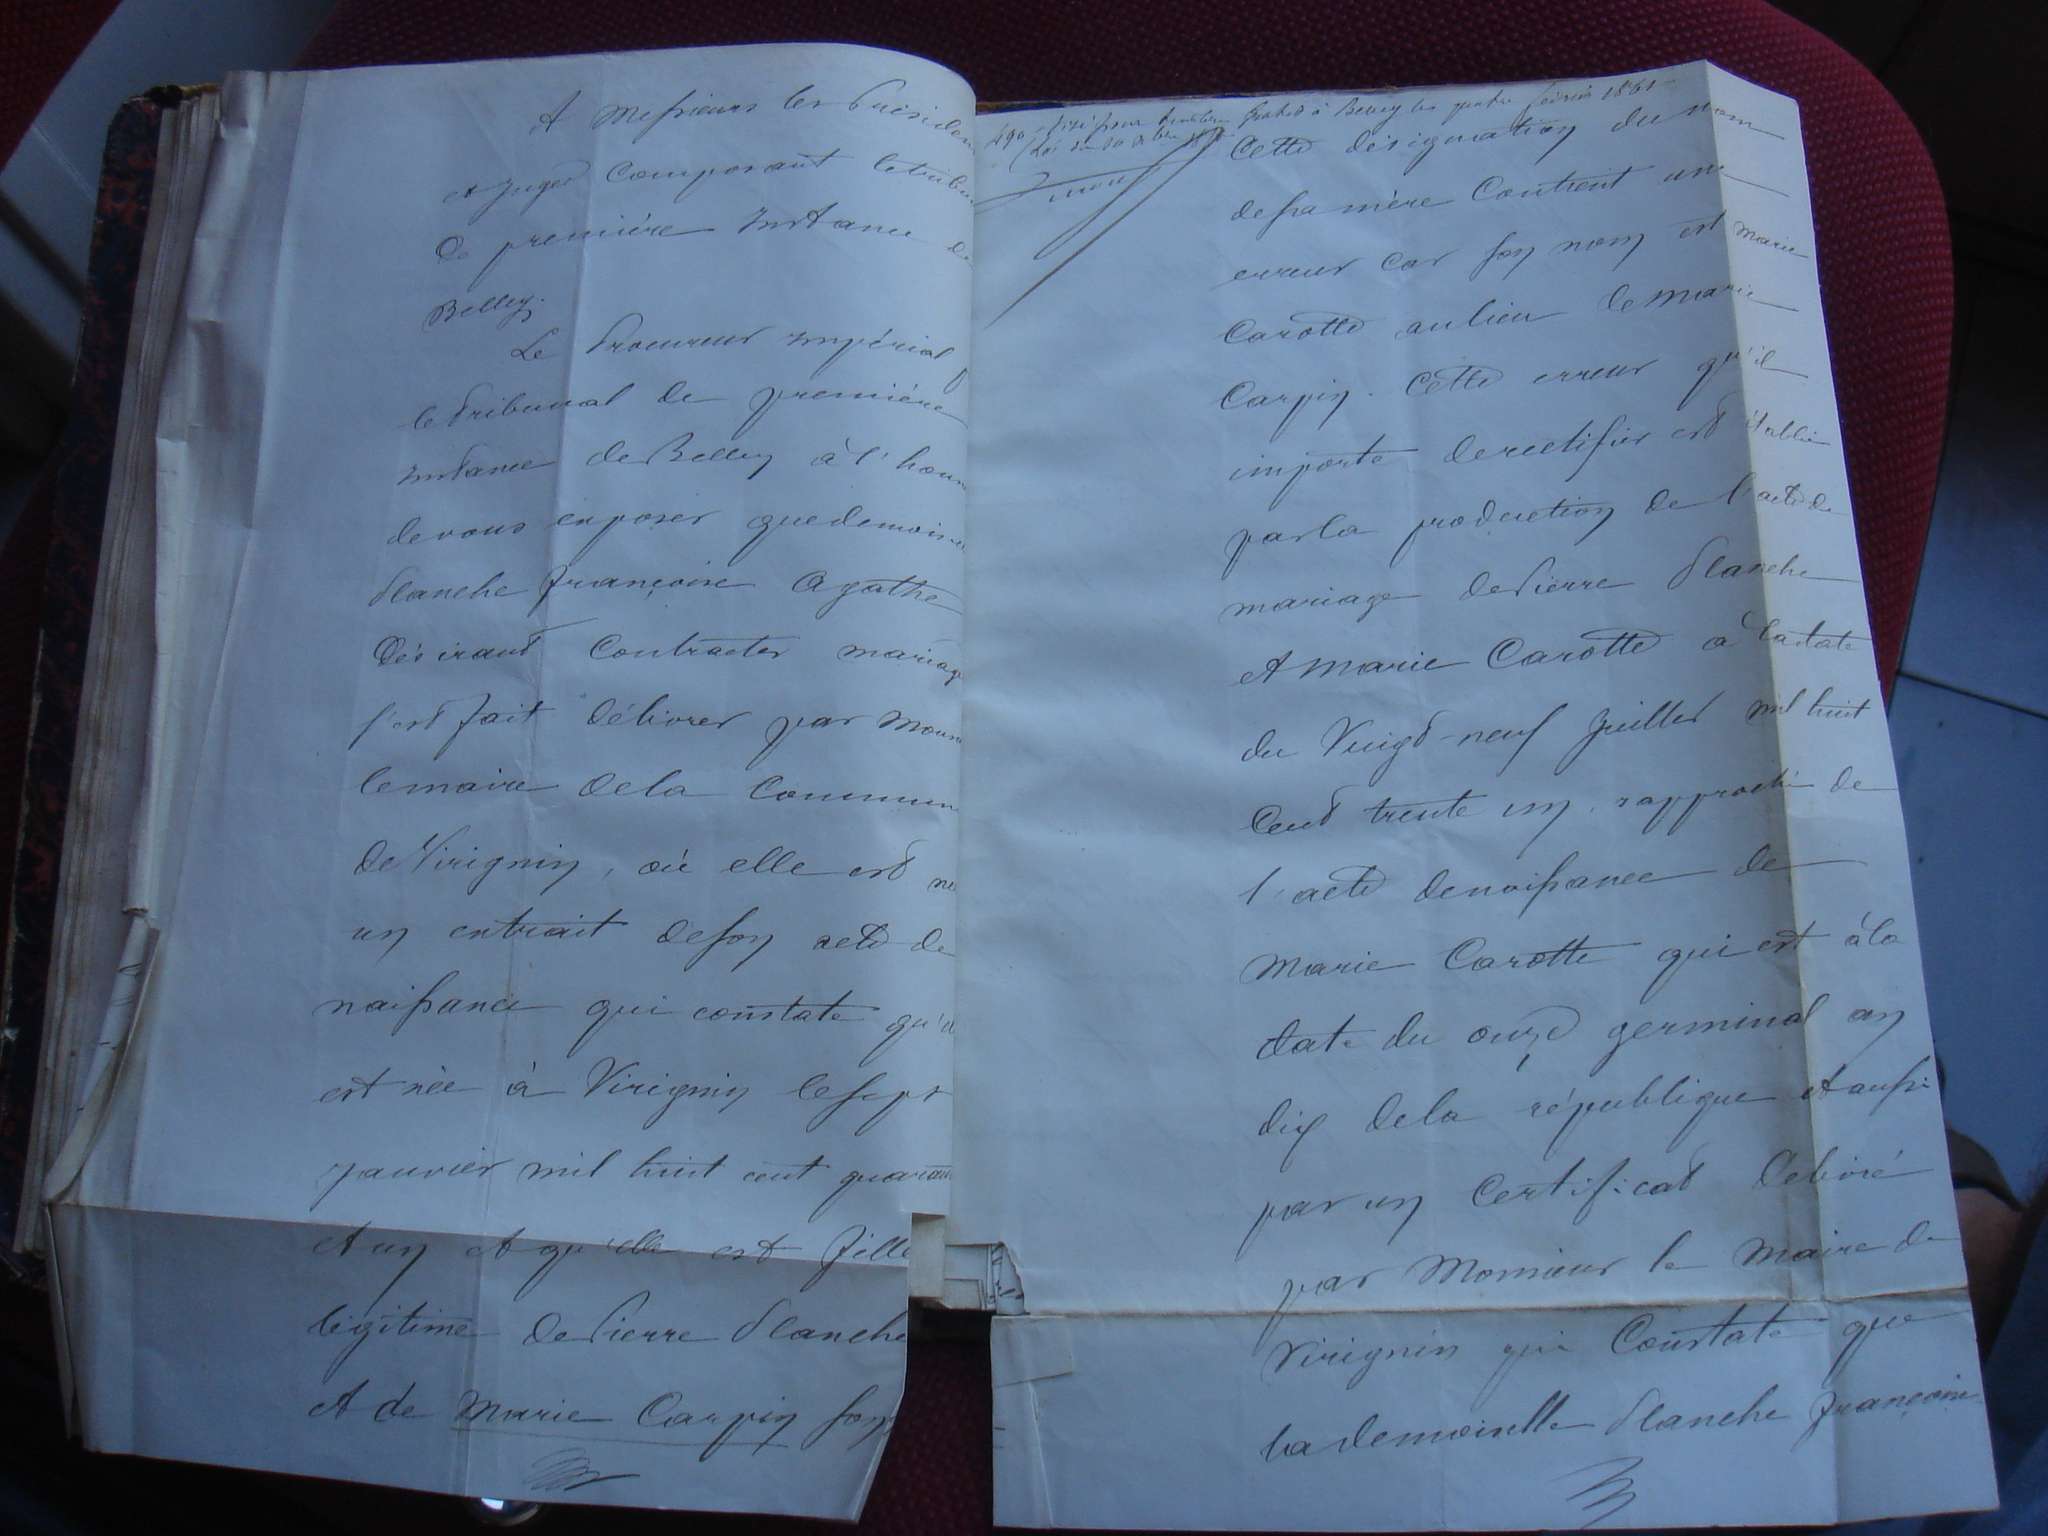 A Messieurs les Présiden
et Juges Composant le tribu
de première Instance de
Belley.
Le Procureur Impérial
le tribunal de première
Instance de Belley à l'honn
de vous exposer que demois
Planche Françoise Agathe
Désirant Contracter mariag
s'est fait délivrer par Mons
le maire de la Commun
de Virignin, où elle est né
un extrait de son acte de
naissance qui constate qu'e
est née à Virignin le sept
Janvier mil huit cent quaran
et un et qu'elle est fille
légitime de Pierre Planche
et de Marie Carpin son
490 Visé pour timbre Gratis à Belley les quatre février 1861
(Loi du 10 Xbre
Cette désignation du nom
de sa mère Contient une
erreur car son nom est Marie
Carotte au lieu de Marie
Carpin. Cette erreur qu'il
importe de rectifier est établie
par la production de l'acte de
mariage de Pierre Planche
et Marie Carotte à la date
du Vingt-neuf Juillet mil huit
Cent trente un, rapproché de
l'acte de naissance de
Marie Carotte qui est à la
date du onze germinal an
dix de la république et aussi
par un Certificat délivré
par Monsieur le Maire de
Virignin qui Constate que
la demoiselle Planche Françoise